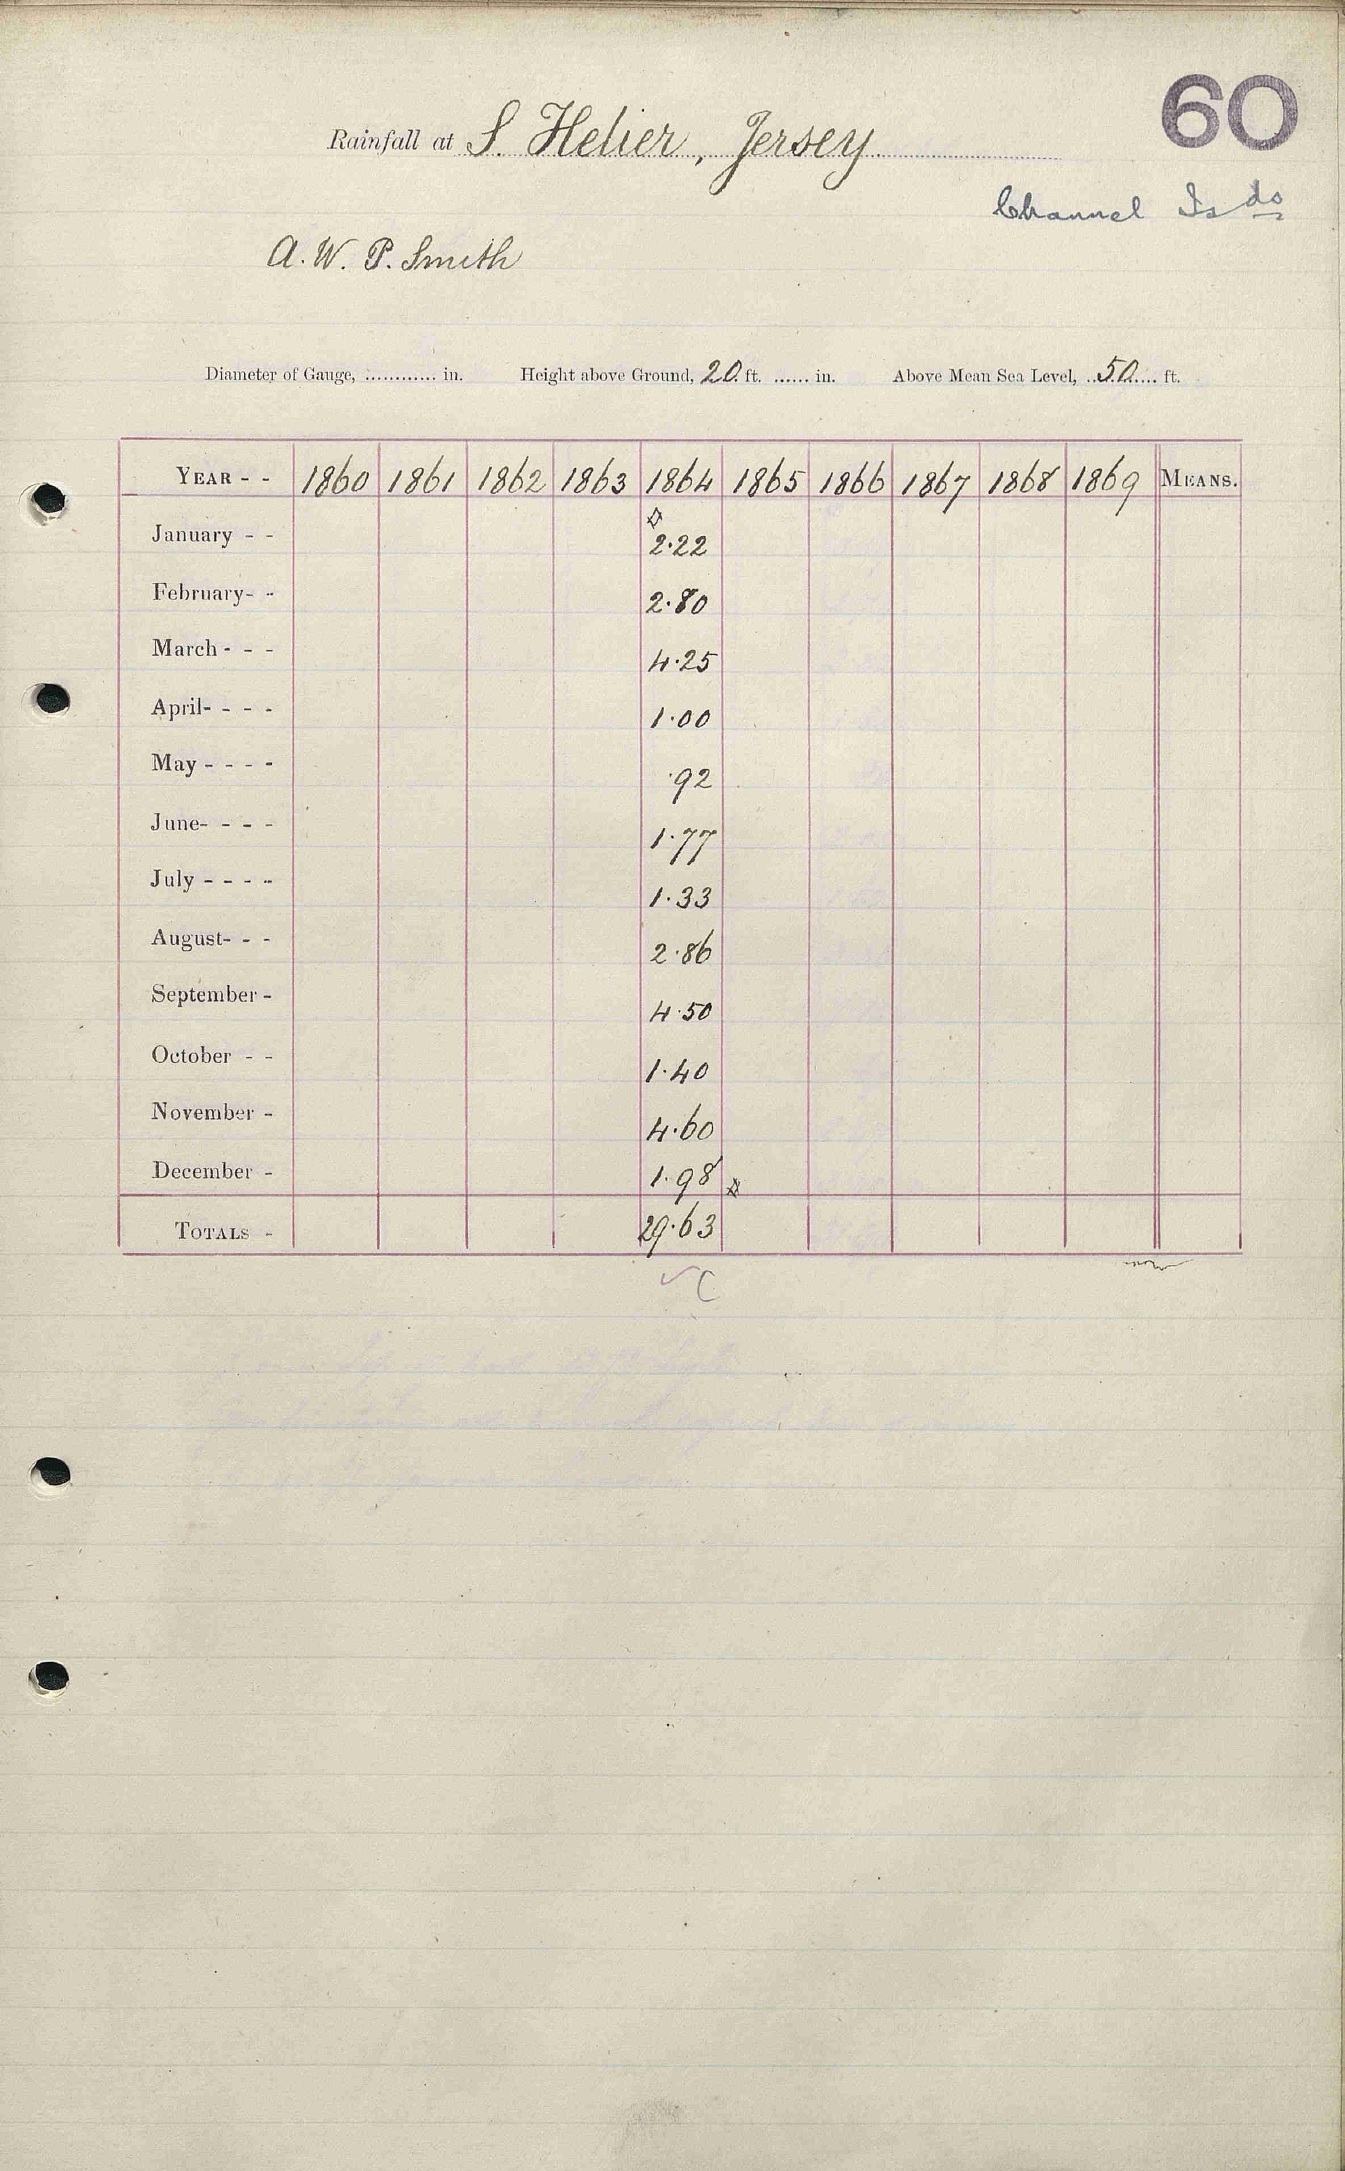 60
Rainfall at S. Helier, Jersey.
Channel Is ds
A. W. P. Smith
Diameter of Gauge, ............ in. Height above Ground, 20 ft. ...... in. Above Mean Sea Level, ..50.... ft.
YEAR - - 1860 1861 1862 1863 1864 1865 1866 1867 1868 1869 MEANS.
January - - 2.22
February- - 2.80
March - - - 4.25
April- - - - 1.00
May - - - - .92
June- - - - 1.77
July - - - - 1.33
August- - - 2.86
September - 4.50
October - - 1.40
November - 4.60
December - 1.98
TOTALS - 29.63
C